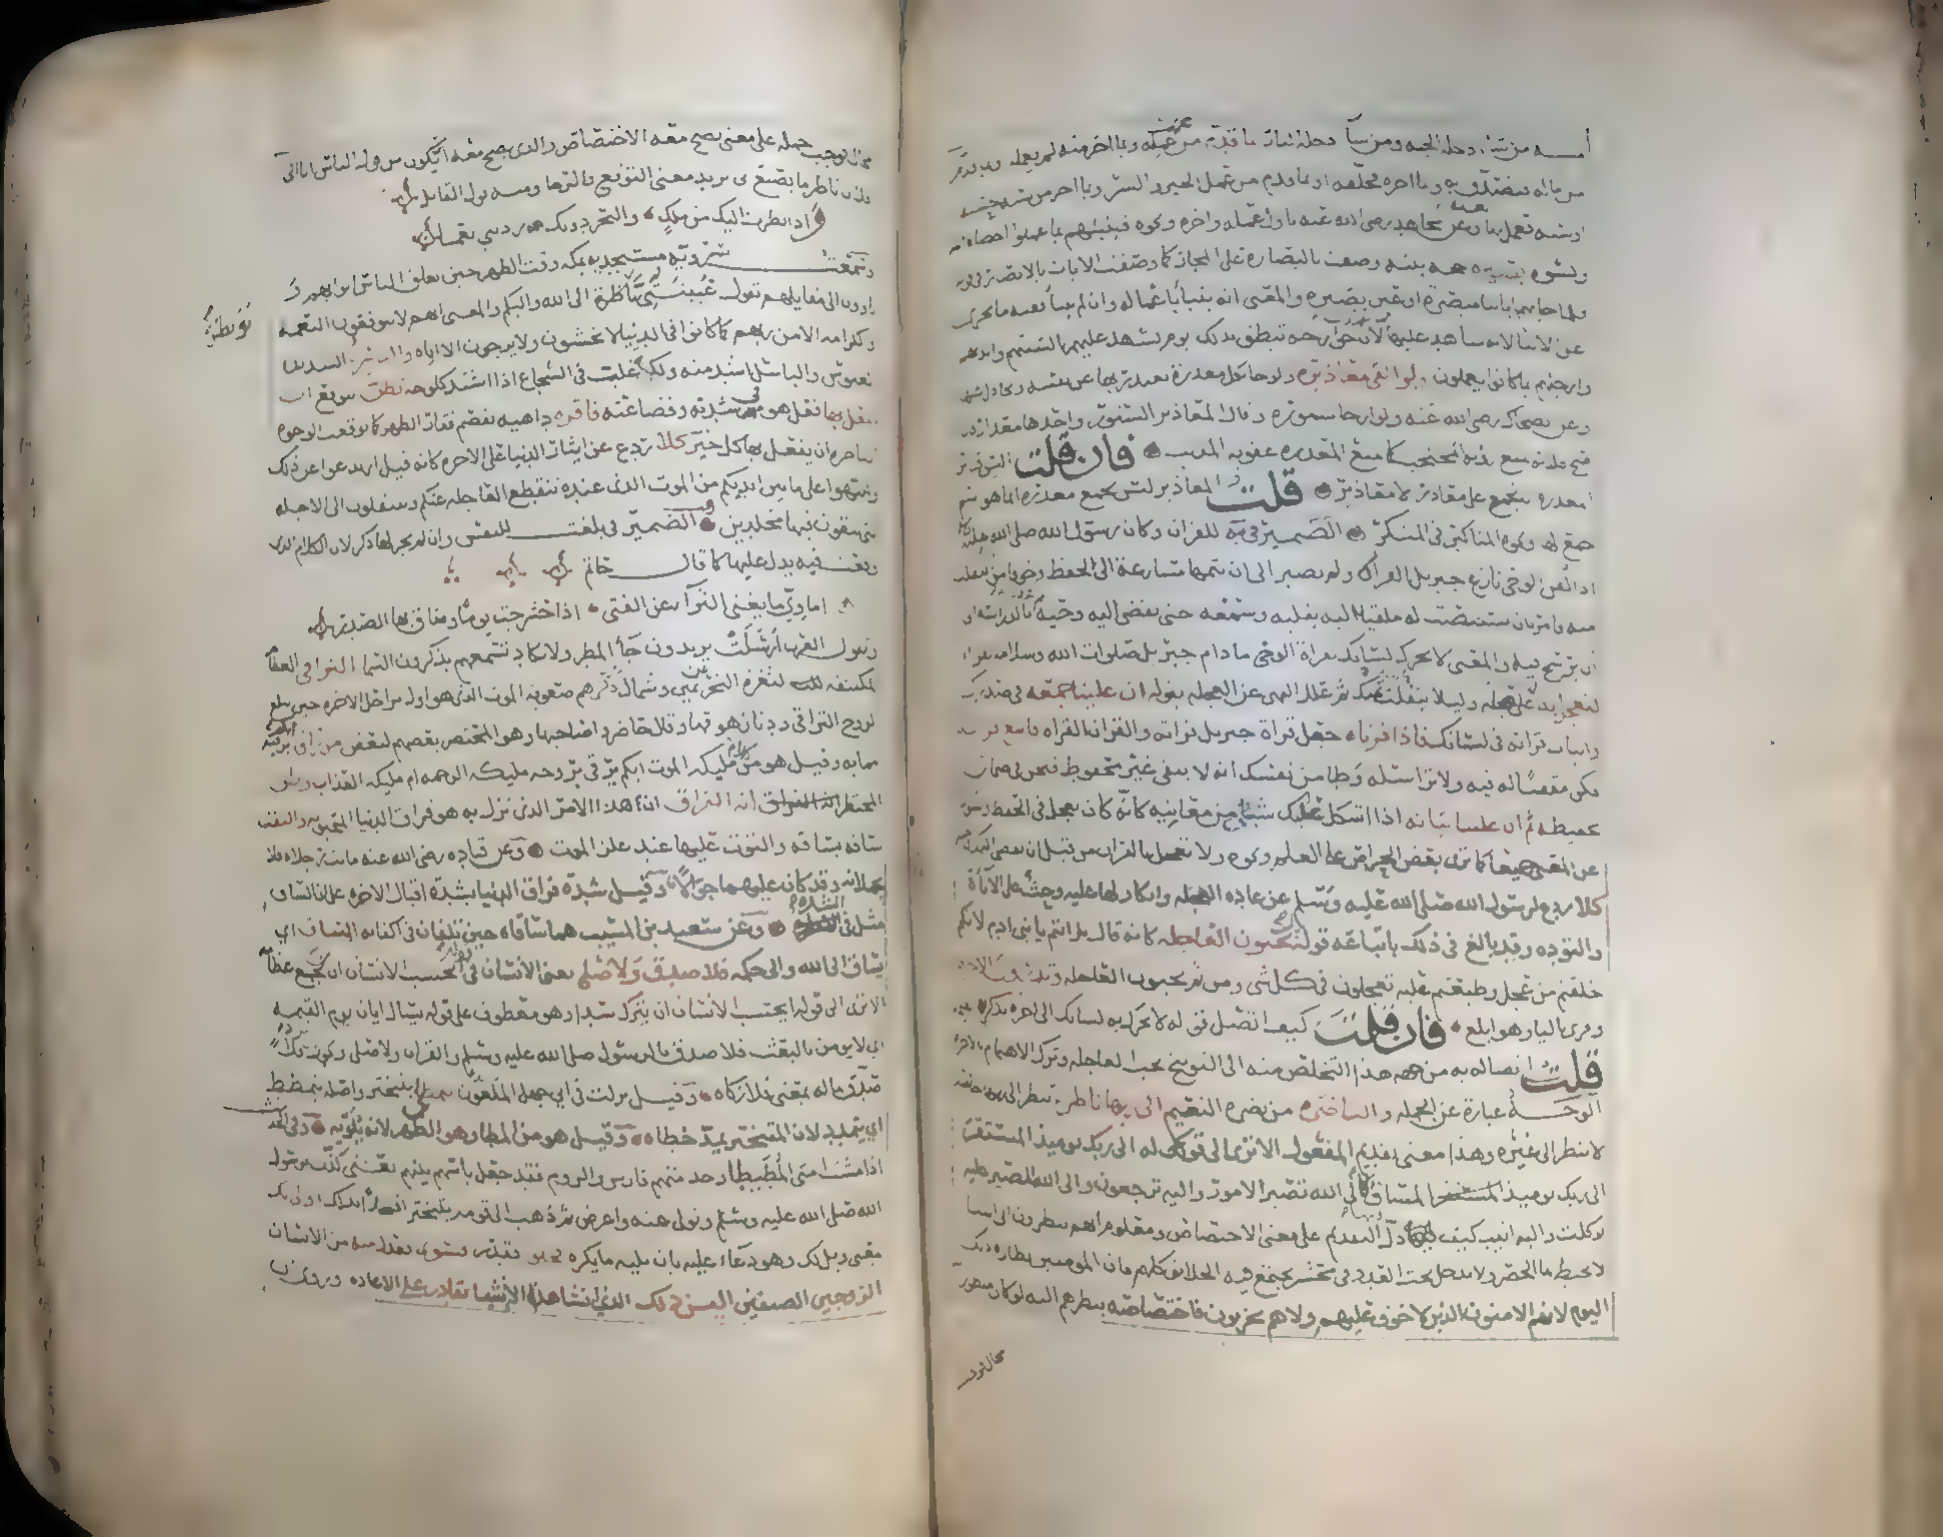 من شاء دخل الجنة ومن شاء دخل النار بما قدم من عمله وبما اخر منه لم يعمله
من ماله فتصدق به وبما اخره فخلفه او بما قدم من عمل الخير والشر وبما اخر من سنة حسنة
او سيئة فعمل بها وعن مجاهد رضى الله عنه باول عمله واخره ونحوه فينبئهم بما عملوا احصاه الله
بصيرة حجة بينة وصفت بالبصارة على المجاز كما وصفت الايات بالابصار فى قوله
فلما جاءتهم اياتنا مبصرة او عين بصيرة والمعنى انه ينبأ باعماله وان لم ينبأ ففيه ما يجزى
عن الانباء لانه شاهد عليها لان جوارحه تنطق بذلك يوم تشهد عليهم السنتهم وايديهم
وارجلهم بما كانوا يعملون ولو القى معاذيره ولو جاء بكل معذرة يعتذر بها عن نفسه ويجادل عنها
وعن الضحاك رضى الله عنه ولو ارخى ستوره وقال المعاذير الستور واحدها معذار
صح فلانه يمنع رؤية المحتجب كما تمنع المعذرة عقوبة المذنب فان قلت اليس قياس
المعذرة ان تجمع على معاذر لا معاذير قلت المعاذير ليس بجمع معذرة انما هو اسم
جمع لها ونحوه المناكير فى المنكر الضمير فى به للقران وكان رسول الله صلى الله عليه
اذا لقن الوحى نازع جبريل القراة ولم يصبر الى ان يتمها مسارعة الى الحفظ وخوفا من ان يتفلت
منه فامر بان يستنصت له ملقيا اليه بقلبه وسمعه حتى يقضى اليه وحيه ثم يقفيه بالدراسة الى
ان يرسخ فيه والمعنى لا تحرك لسانك بقراة الوحى ما دام جبريل صلوات الله وسلامه يقرا
لتعجل به لتاخذه على عجلة وليلا يتفلت منك ثم علل النهى عن العجلة بقوله ان علينا جمعه فى صدرك
واثبات قراته فى لسانك فاذا قراناه جعل قراة جبريل قراته والقران القراة فاتبع قرانه
فكن مقفيا له فيه ولا تراسله وطامن نفسك انه لا يبقى غير محفوظ فنحن فى ضمان
تحفيظه ثم ان علينا بيانه اذا اشكل عليك شئ من معانيه كانه كان يعجل فى الحفظ والسؤال
عن المعنى جميعا كما ترى بعض الحراص على العلم ونحوه ولا تعجل بالقران من قبل ان يقضى اليك وحيه
كلا ردع لرسول الله صلى الله عليه وسلم عن عادة العجلة وانكار لها عليه وحث على الاناة
والتؤدة وقد بالغ فى ذلك باتباعه قوله بل تحبون العاجلة كانه قال بل انتم يا بنى ادم لانكم
خلقتم من عجل وطبعتم عليه تعجلون فى كل شى ومن ثم تحبون العاجلة وتذرون الاخرة
وقرى باليا وهو ابلغ فان قلت كيف اتصل قوله لا تحرك به لسانك الى اخره بذكر
قلت اتصاله به من جهة هذا التخلص منه الى التوبيخ بحب العاجلة وترك الاهتمام بالاخرة
الوجه عبارة عن الجملة والناضرة من نضرة النعيم الى ربها ناظرة تنظر الى ربها خاصة
لا تنظر الى غيره وهذا معنى تقديم المفعول الا ترى الى قوله الى ربك يومئذ المستقر
الى ربك يومئذ المساق الى الله تصير الامور واليه ترجعون والى الله المصير عليه
توكلت واليه انيب كيف دل التقديم على معنى الاختصاص ومعلوم انهم ينظرون الى اشيا
لا يحيط بها الحصر ولا تدخل تحت العدد فى محشر يجتمع فيه الخلائق كلهم فان المومنين نظارة ذلك
اليوم لانهم الامنون الذين لا خوف عليهم ولا هم يحزنون فاختصاصه بنظرهم اليه لو كان منظورا
محال فوجب
محال فوجب حمله على معنى يصح معه الاختصاص والذى يصح معه ان يكون من قول الناس انا الى
فلان ناظر ما يصنع بى يريد معنى التوقع والرجا ومنه قول القائل
واذا نظرت اليك من ملك والبحر دونك زدتنى نعما
وسمعت سروية مستجدية بمكة وقت الظهر حين يغلق الناس ابوابهم و
ياوون الى مقايلهم تقول عيينتى نويظرة الى الله واليكم والمعنى انهم لا يتوقعون النعمة
نويظرة
والكرامة الا من ربهم كما كانوا فى الدنيا لا يخشون ولا يرجون الا اياه والباسر الشديد
العبوس والباسل اشد منه ولكنه غلب فى الشجاع اذا اشتد كلوحه تظن تتوقع ان
يفعل بها فعل هو فى شدته وفظاعته فاقرة داهية تقصم فقار الظهر كما توقعت الوجوه
الناضرة ان يفعل بها كل خير كلا ردع عن ايثار الدنيا على الاخرة كانه قيل ارتدعوا عن ذلك
وتنبهوا على ما بين ايديكم من الموت الذى عنده تنقطع العاجلة عنكم وتنتقلون الى الاجلة
التى تبقون فيها مخلدين والضمير فى بلغت للنفس وان لم يجر لها ذكر لان الكلام الذى
وقعت فيه يدل عليها كما قال حاتم
اماوى ما يغنى الثراء عن الفتى اذا حشرجت يوما وضاق بها الصدر
وتقول العرب ارسلت يريدون جاء المطر ولا تكاد تسمعهم يذكرون السما التراقى العظام
المكتنفة لثغرة النحر عن يمين وشمال ذكرهم صعوبة الموت الذى هو اول مراحل الاخرة حين تبلغ
الروح التراقى ودنا زهوقها وقال حاضروا صاحبها وهو المحتضر بعضهم لبعض من راق ايكم يرقيه
مما به وقيل هو من كلام مليكة الموت ايكم يرقى بروحه مليكة الرحمة ام مليكة العذاب وظن
المحتضر انه الفراق ان هذا الامر الذى نزل به هو فراق الدنيا المحبوبة والتفت
ساقه بساقه والتوت عليها عند علز الموت وعن قتادة رضى الله عنه ماتت رجلاه فلا
يحملانه وقد كان عليهما جوالا وقيل شدة فراق الدنيا بشدة اقبال الاخرة على ان الساق
مثل فى الشدة وعن سعيد بن المسيب هما ساقاه حين تلفان فى اكفانه المساق اى
يساق الى الله والى حكمه فلا صدق ولا صلى يعنى الانسان فى قوله ايحسب الانسان ان لن نجمع عظامه
الا ترى الى قوله ايحسب الانسان ان يترك سدا وهو معطوف على قوله يسال ايان يوم القيمة
اى لا يومن بالبعث فلا صدق بالرسول صلى الله عليه وسلم والقران ولا صلى ويجوز ان يراد
صدق ماله بمعنى فلا زكاه وقيل نزلت فى ابى جهل الملعون يتمطى يتبختر واصله يتمطط
اى يتمدد لان المتبختر يمد خطاه وقيل هو من المطا وهو الظهر لانه يلويه وفى الحديث
اذا مشت امتى المطيطا وخدمتهم فارس والروم فقد جعل باسهم بينهم يعنى كذب برسول
الله صلى الله عليه وسلم وتولى عنه واعرض ثم ذهب الى قومه يتبختر افتخارا بذلك اولى لك
بمعنى ويل لك وهو دعاء عليه بان يليه ما يكره فخلق فقدر فسوى فعدل منه من الانسان
الزوجين الصنفين اليس ذلك الذى انشا هذا الانشا بقادر على الاعادة وروى ان